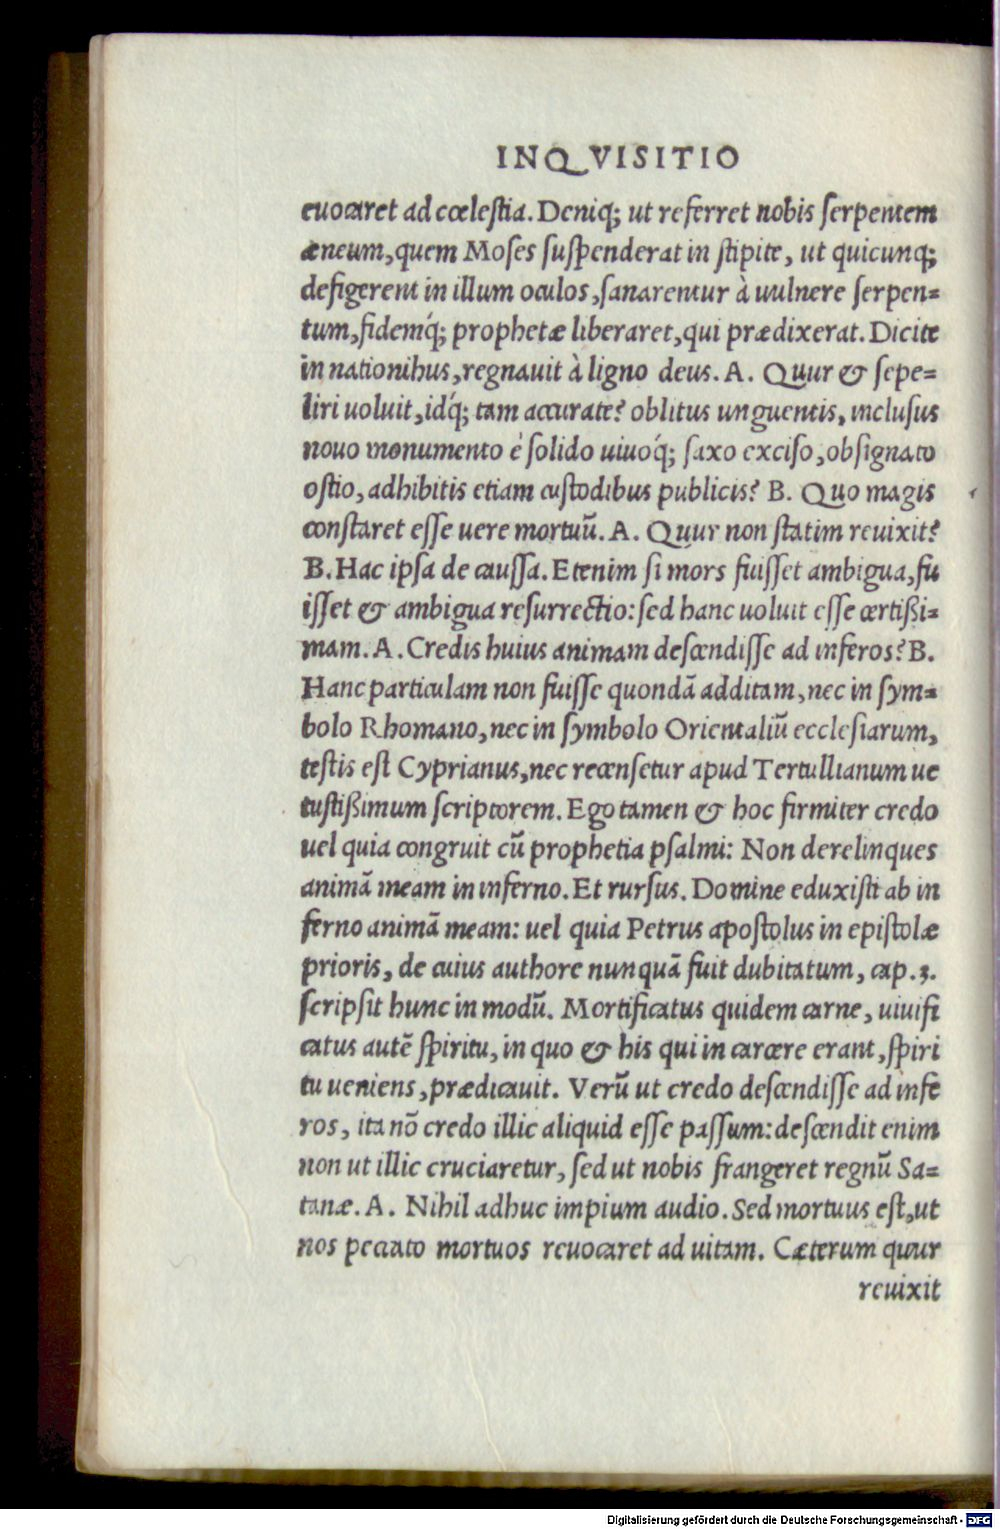 INQVISITIO
euocaret ad cœlestia. Deniq; ut referret nobis serpentem
æneum, quem Moses suspenderat in stipite, ut quicunq;
defigerent in illum oculos, sanarentur à uulnere serpen=
tum, fidemq́; prophetæ liberaret, qui prædixerat. Dicite
in nationibus, regnauit à ligno deus. A. Quur & sepe=
liri uoluit, idq́; tam accurate? oblitus unguentis, inclusus
nouo monumento è solido uiuoq́; saxo exciso, obsignato
ostio, adhibitis etiam custodibus publicis? B. Quo magis
constaret esse uere mortuũ. A. Quur non statim reuixit?
B. Hac ipsa de caussa. Etenim si mors fuisset ambigua, fu
isset & ambigua resurrectio: sed hanc uoluit esse certißi=
mam. A. Credis huius animam descendisse ad inferos? B.
Hanc particulam non fuisse quondã additam, nec in sym=
bolo Rhomano, nec in symbolo Orientaliũ ecclesiarum,
testis est Cyprianus, nec recensetur apud Tertullianum ue
tustißimum scriptorem. Ego tamen & hoc firmiter credo
uel quia congruit cũ prophetia psalmi: Non derelinques
animã meam in inferno. Et rursus. Domine eduxisti ab in
ferno animã meam: uel quia Petrus apostolus in epistolæ
prioris, de cuius authore nunquã fuit dubitatum, cap. 3.
scripsit hunc in modũ. Mortificatus quidem carne, uiuifi
catus autẽ spiritu, in quo & his qui in carcere erant, spiri
tu ueniens, prædicauit. Verũ ut credo descendisse ad infe
ros, ita nõ credo illic aliquid esse passum: descendit enim
non ut illic cruciaretur, sed ut nobis frangeret regnũ Sa=
tanæ. A. Nihil adhuc impium audio. Sed mortuus est, ut
nos peccato mortuos reuocaret ad uitam. Cæterum quur
reuixit
Digitalisierung gefördert durch die Deutsche Forschungsgemeinschaft - DFG